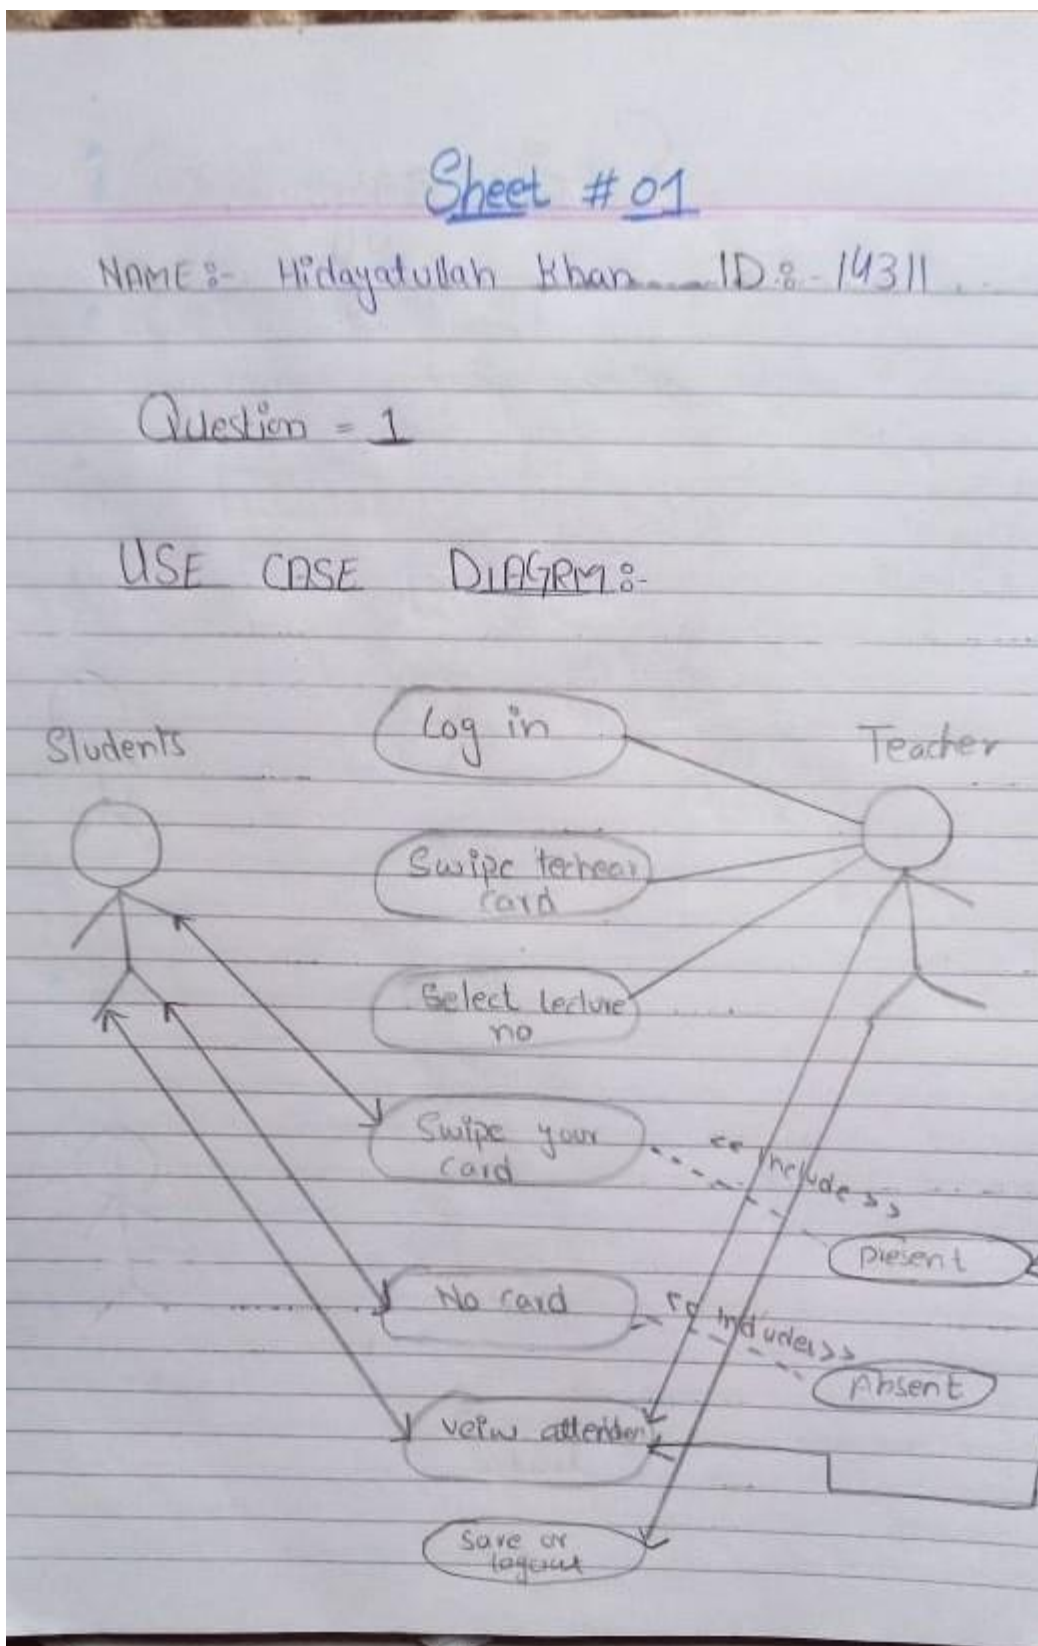 Sheet # 01
NAME:- Hidayatullah Khan ID:- 14311
Question = 1
USE CASE DIAGRM:-
Students
Log in
Teacher
Swipe
card
Select lecture
no
Swipe your
card
<< Include >>
Present
No card
<< Include >>
Absent
veiw
save or
logout